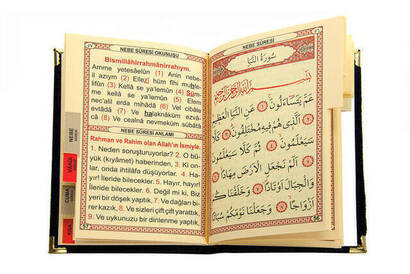 NEBE SÛRESİ OKUNUŞU
Bismillâhirrahmânirrahıym.
Amme yetesâelûn (1) Anin nebe-
il azıym (2) Ellezî hüm fîhi muhte-
lifûn (3) Kellâ se ya'lemûn (4) Süm-
me kellâ se ya'lemûn (5) Elem
nec'alil erda mihâdâ (6) Vel cibâle
evtâdâ (7) Ve halaknâküm ezvâ-
câ (8) Ve cealnâ nevmeküm sübâtâ
NEBE SÛRESİ ANLAMI
Rahman ve Rahim olan Allah'ın İsmiyle.
1. Neden soruşturuyorlar? 2. O bü-
yük (kıyâmet) haberinden, 3. Ki on-
lar, onda ihtilâfa düşüyorlar. 4. Ha-
yır! İleride bilecekler. 5. Hayır, hayır!
İleride bilecekler. 6. Değil mi ki, Biz
yeri bir döşek yaptık. 7. Ve dağları bi-
rer kazık. 8. Ve sizleri çift çift yarattık.
9. Ve uykunuzu bir dinlenme yaptık.
NEBE
CUMA
NEBE SÛRESİ
سُورَةُ النَّبَإِ
بِسْمِ اللهِ الرَّحْمٰنِ الرَّحِيمِ
عَمَّ يَتَسَاءَلُونَ ﴿١﴾ عَنِ النَّبَإِ الْعَظِيمِ
﴿٢﴾ اَلَّذِى هُمْ فِيهِ مُخْتَلِفُونَ ﴿٣﴾
كَلَّا سَيَعْلَمُونَ ﴿٤﴾ ثُمَّ كَلَّا سَيَعْلَمُونَ
﴿٥﴾ اَلَمْ نَجْعَلِ الْاَرْضَ مِهَادًا ﴿٦﴾
وَالْجِبَالَ اَوْتَادًا ﴿٧﴾ وَخَلَقْنَاكُمْ
اَزْوَاجًا ﴿٨﴾ وَجَعَلْنَا نَوْمَكُمْ سُبَاتًا